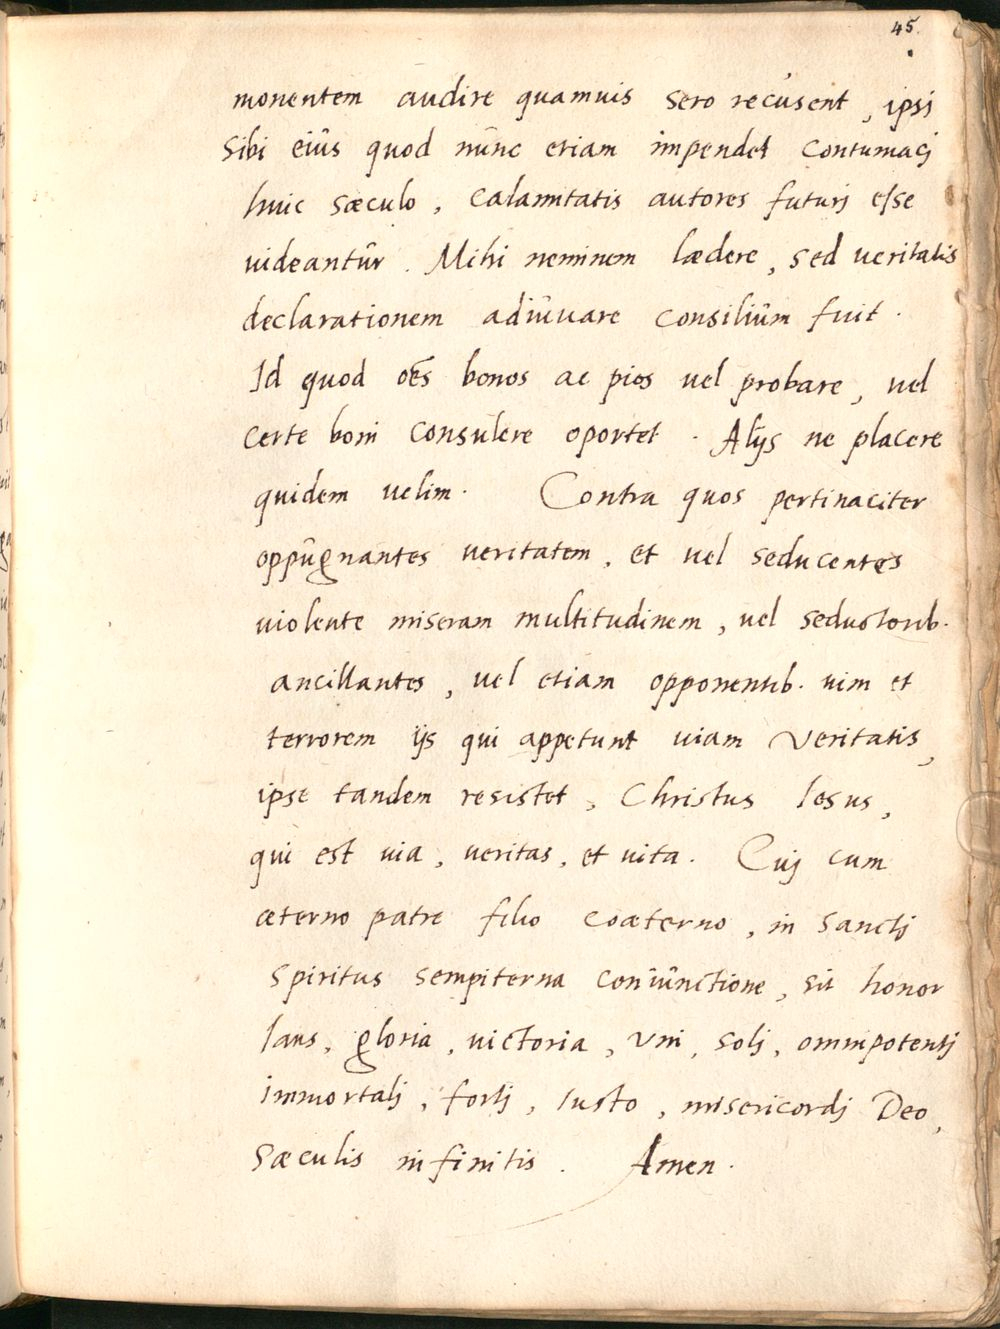 45.
monentem audire quamuis sero recusent, ipsj
sibi eiûs quod nûnc etiam impendet contumacj
huic sæculo, calamitatis autores futurj esse
uideantûr. Mihi neminem lædere, sed ueritatis
declarationem adiûuare consiliûm fuit.
Id quod oẽs bonos ac pios uel probare, uel
certe boni consulere oportet. Alijs ne placere
quidem uelim. Contra quos pertinaciter
oppûgnantes ueritatem, et uel seducentes
uiolente miseram multitudinem, uel seductorib.
ancillantes, uel etiam opponentib. uim et
terrorem ijs qui appetunt uiam veritatis,
ipse tandem resistet, Christus Iesus,
qui est uia, ueritas, et uita. Cuj cum
æterno patre filio coæterno, in sanctj
spiritus sempiterna coniûnctione, sit honor
laus, gloria, uictoria, vni, solj, omnipotentj
immortalj, fortj, iusto, misericordj Deo,
sæculis infinitis. Amen.